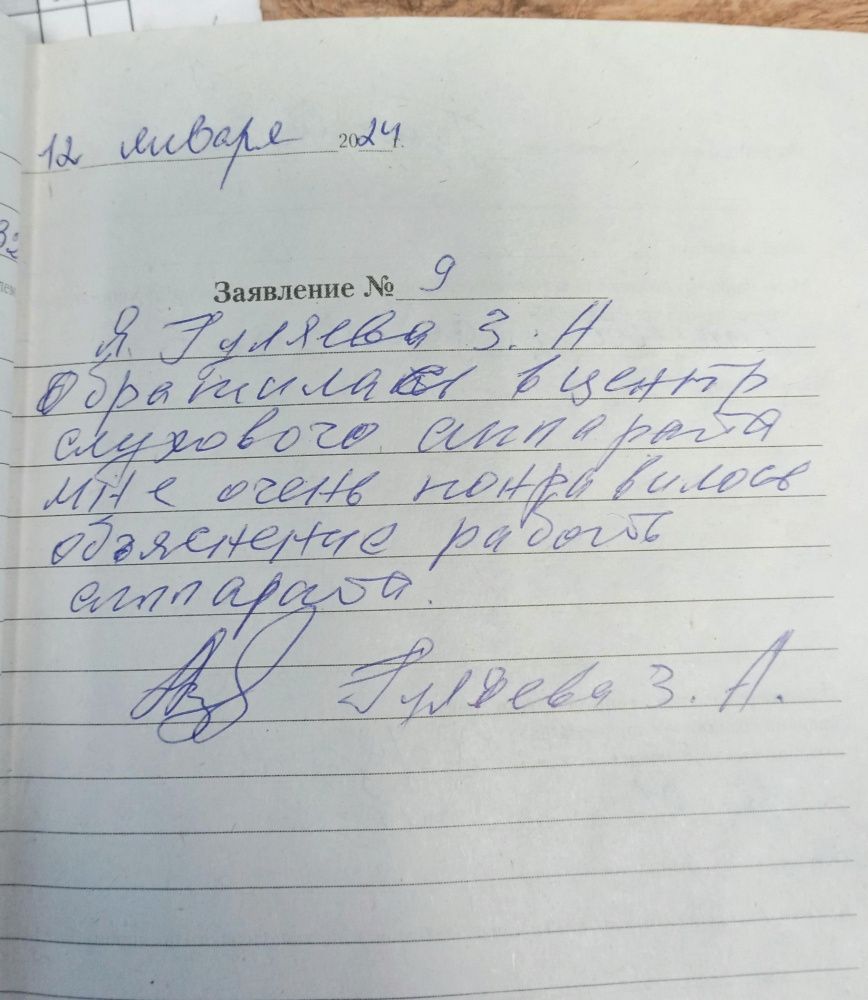 12 января 2024 г.
Заявление № 9
Я Гуляева З. А
Обратилась в центр
слухового аппарата
мне очень понравилось
объяснение работь
аппарата.
Гуляева З. А.